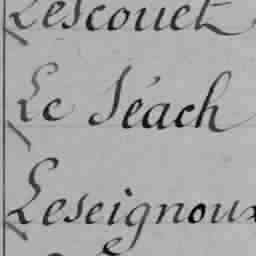 Lescouet
Le Séach
Leseignoux